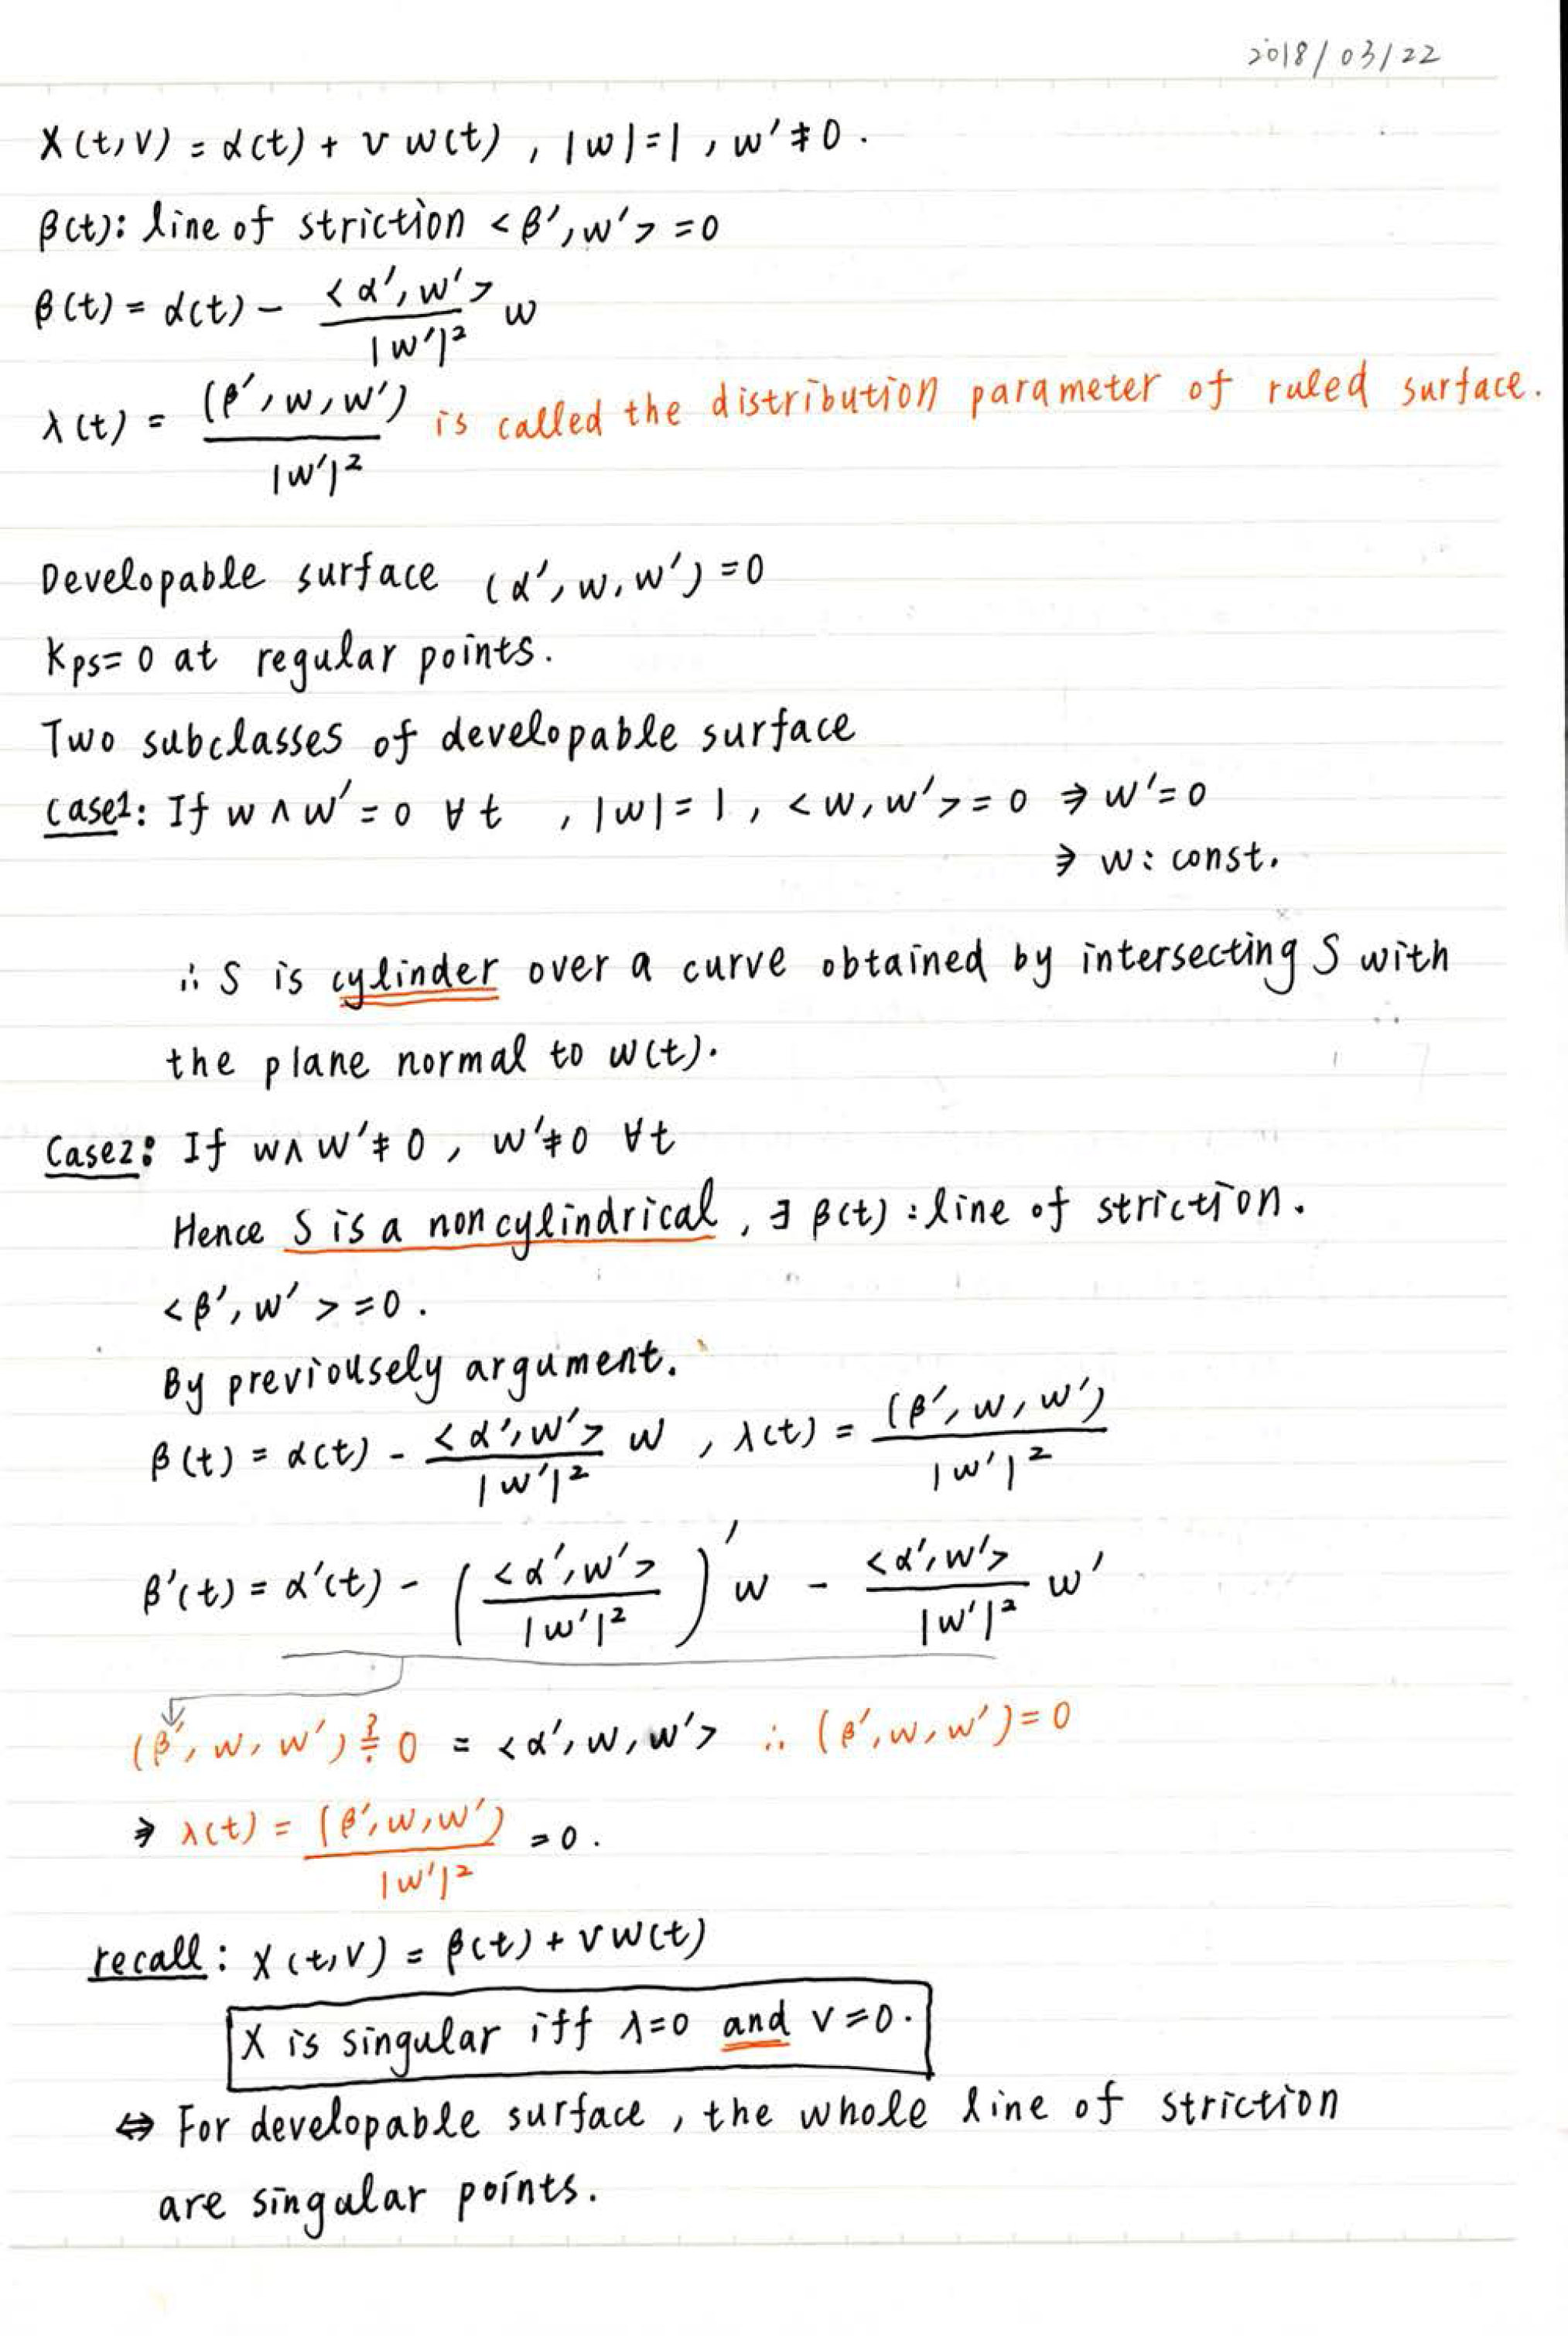 2018/03/22
X(t,v) = α(t) + v w(t) , |w|=1 , w'≠0 .
β(t): line of striction <β', w'> =0
β(t) = α(t) - <α', w'>/|w'|² w
λ(t) = (β', w, w')/|w'|² is called the distribution parameter of ruled surface.
Developable surface (α', w, w') =0
Kps= 0 at regular points.
Two subclasses of developable surface
case1: If w ∧ w' = 0 ∀ t , |w| = 1 , <w, w'> = 0 ⇒ w'= 0
⇒ w : const.
∴ S is cylinder over a curve obtained by intersecting S with
the plane normal to w(t).
Case2: If w∧w'≠0 , w'≠0 ∀t
Hence S is a noncylindrical , ∃ β(t) : line of striction .
<β', w' > =0 .
By previousely argument.
β(t) = α(t) - <α', w'>/|w'|² w , λ(t) = (β', w, w')/|w'|²
β'(t) = α'(t) - (<α', w'>/|w'|²)' w - <α', w'>/|w'|² w'
(β', w, w') ≟ 0 = <α', w, w'> ∴ (β', w, w') = 0
⇒ λ(t) = (β', w, w')/|w'|² = 0 .
recall : X(t,v) = β(t) + v w(t)
X is singular iff λ=0 and v=0 .
⇔ For developable surface , the whole line of striction
are singular points.